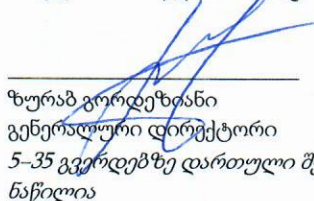 ზურაბ გორდეზიანი
გენერალური დირექტორი
5–35 გვერდებზე დართული
ნაწილია